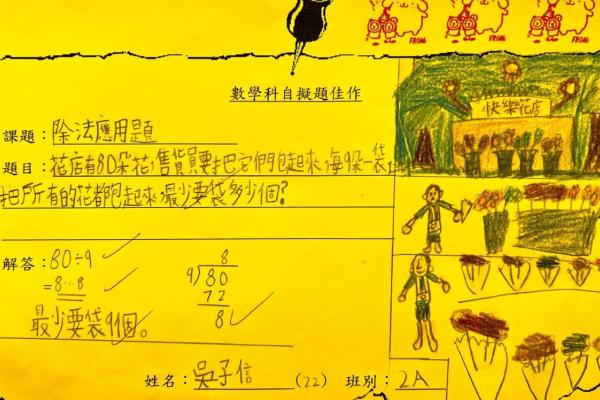 FROM FROM FROM
數學科自擬題佳作
快樂花店
課題：除法應用題
題目：花店有80朵花，售貨員要把它們包起來，每9朵一袋，
把所有的花都包起來，最少要袋多少個？
解答：80÷9
=8…8
最少要袋9個。
8
9)80
72
8
姓名：吳子信 (22) 班別：2A